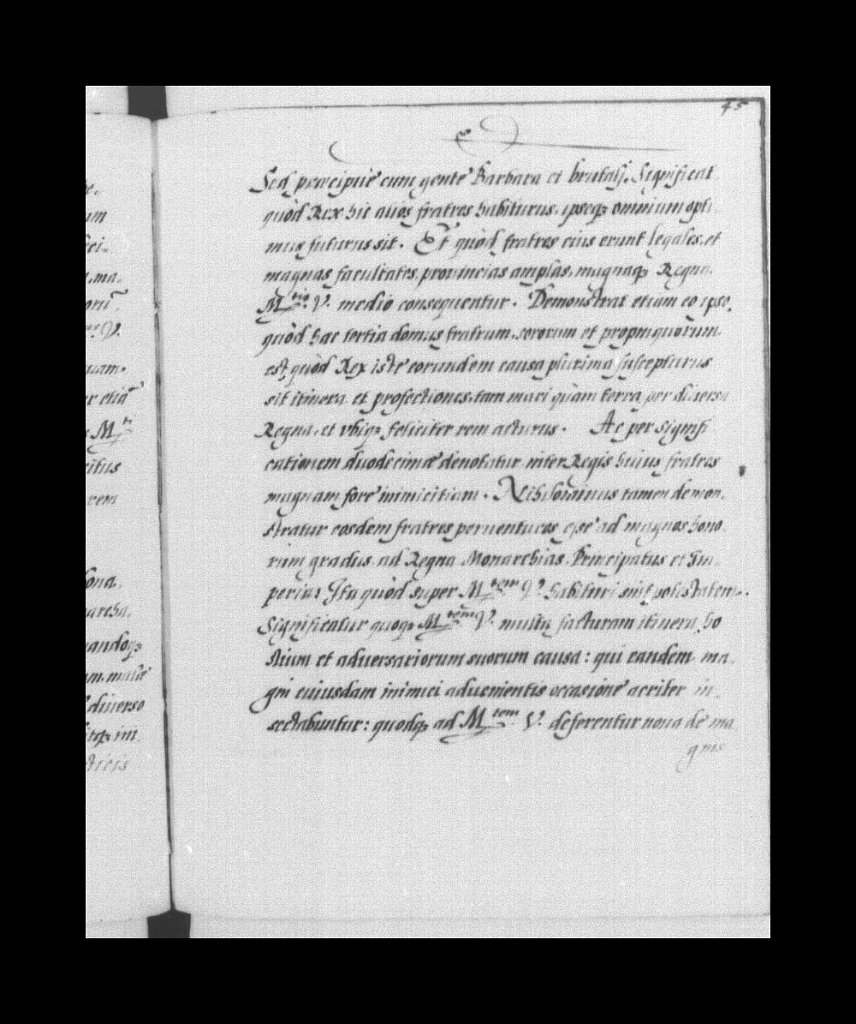 45
Sed præcipuè cum gente Barbara et brutali. Significat
quòd Rex hic alios fratres habiturus, ipseq; omnium opti
mus futurus sit. Et quòd fratres eius erunt legales, et
magnas facultates, provincias amplas, magnaq; Regna
M.tis V. medio consequentur. Demonstrat etiam eo ipso,
quòd hæc tertia domus fratrum, sororum et propinquorum
est, quòd Rex iste eorundem causa plurima suscepturus
sit itinera et profectiones, tam mari quàm terra per diversa
Regna, et vbiq; feliciter rem acturus. Ac per signifi
cationem duodecimæ denotatur inter Regis huius fratres
magnam fore inimicitiam. Nihilominus tamen demon
stratur eosdem fratres perventuros esse ad magnos hono
rum gradus, ad Regna Monarchias, Principatus et Im
peria: Ita quòd super M.tem V. habituri sint potestatem.
Significatur quoq; M.tem V. multa facturam itinera, ho
stium et adversariorum suorum causa: qui eandem ma
gni cuiusdam inimici advenientis occasione acriter in
sectabuntur: quodq; ad M.tem V. deferentur noua de ma
gnis
um
ma.
V.
quam.
etiā
M.tis
rem
andoq;
diuerso